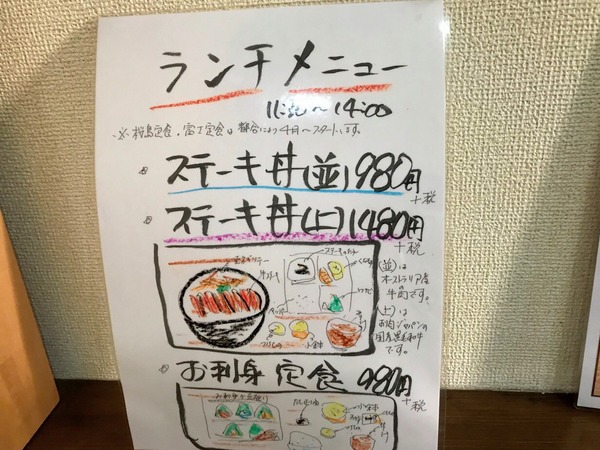 ランチメニュー
11:30〜14:00
※桜島定食・富士定食は都合により4月〜スタートします。
ステーキ丼(並)980円
+税
ステーキ丼(上)1480円
+税
(並)は
オーストラリア産
牛肉です。
(上)は
お肉ジャパンの
国産黒毛和牛
です。
ワサビ
小鉢
お刺身定食 980円
+税
お刺身
小鉢